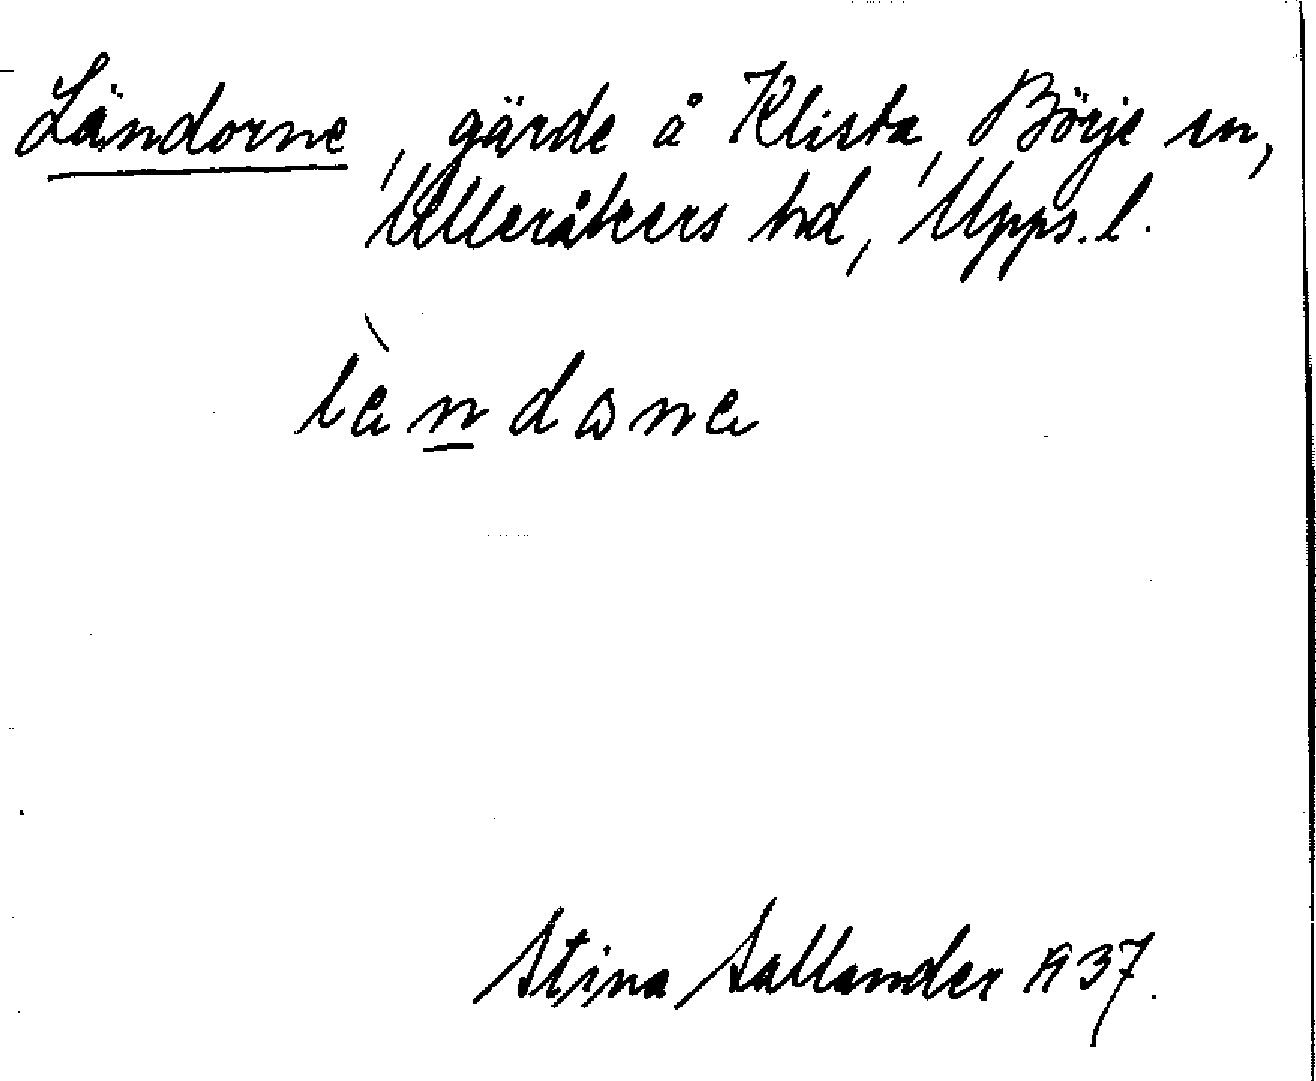 Ländorne, gärde å Klista, Börje sn,
Ulleråkers hd, Upps. l.
lὲndɷna
Stina Sallander 1937.